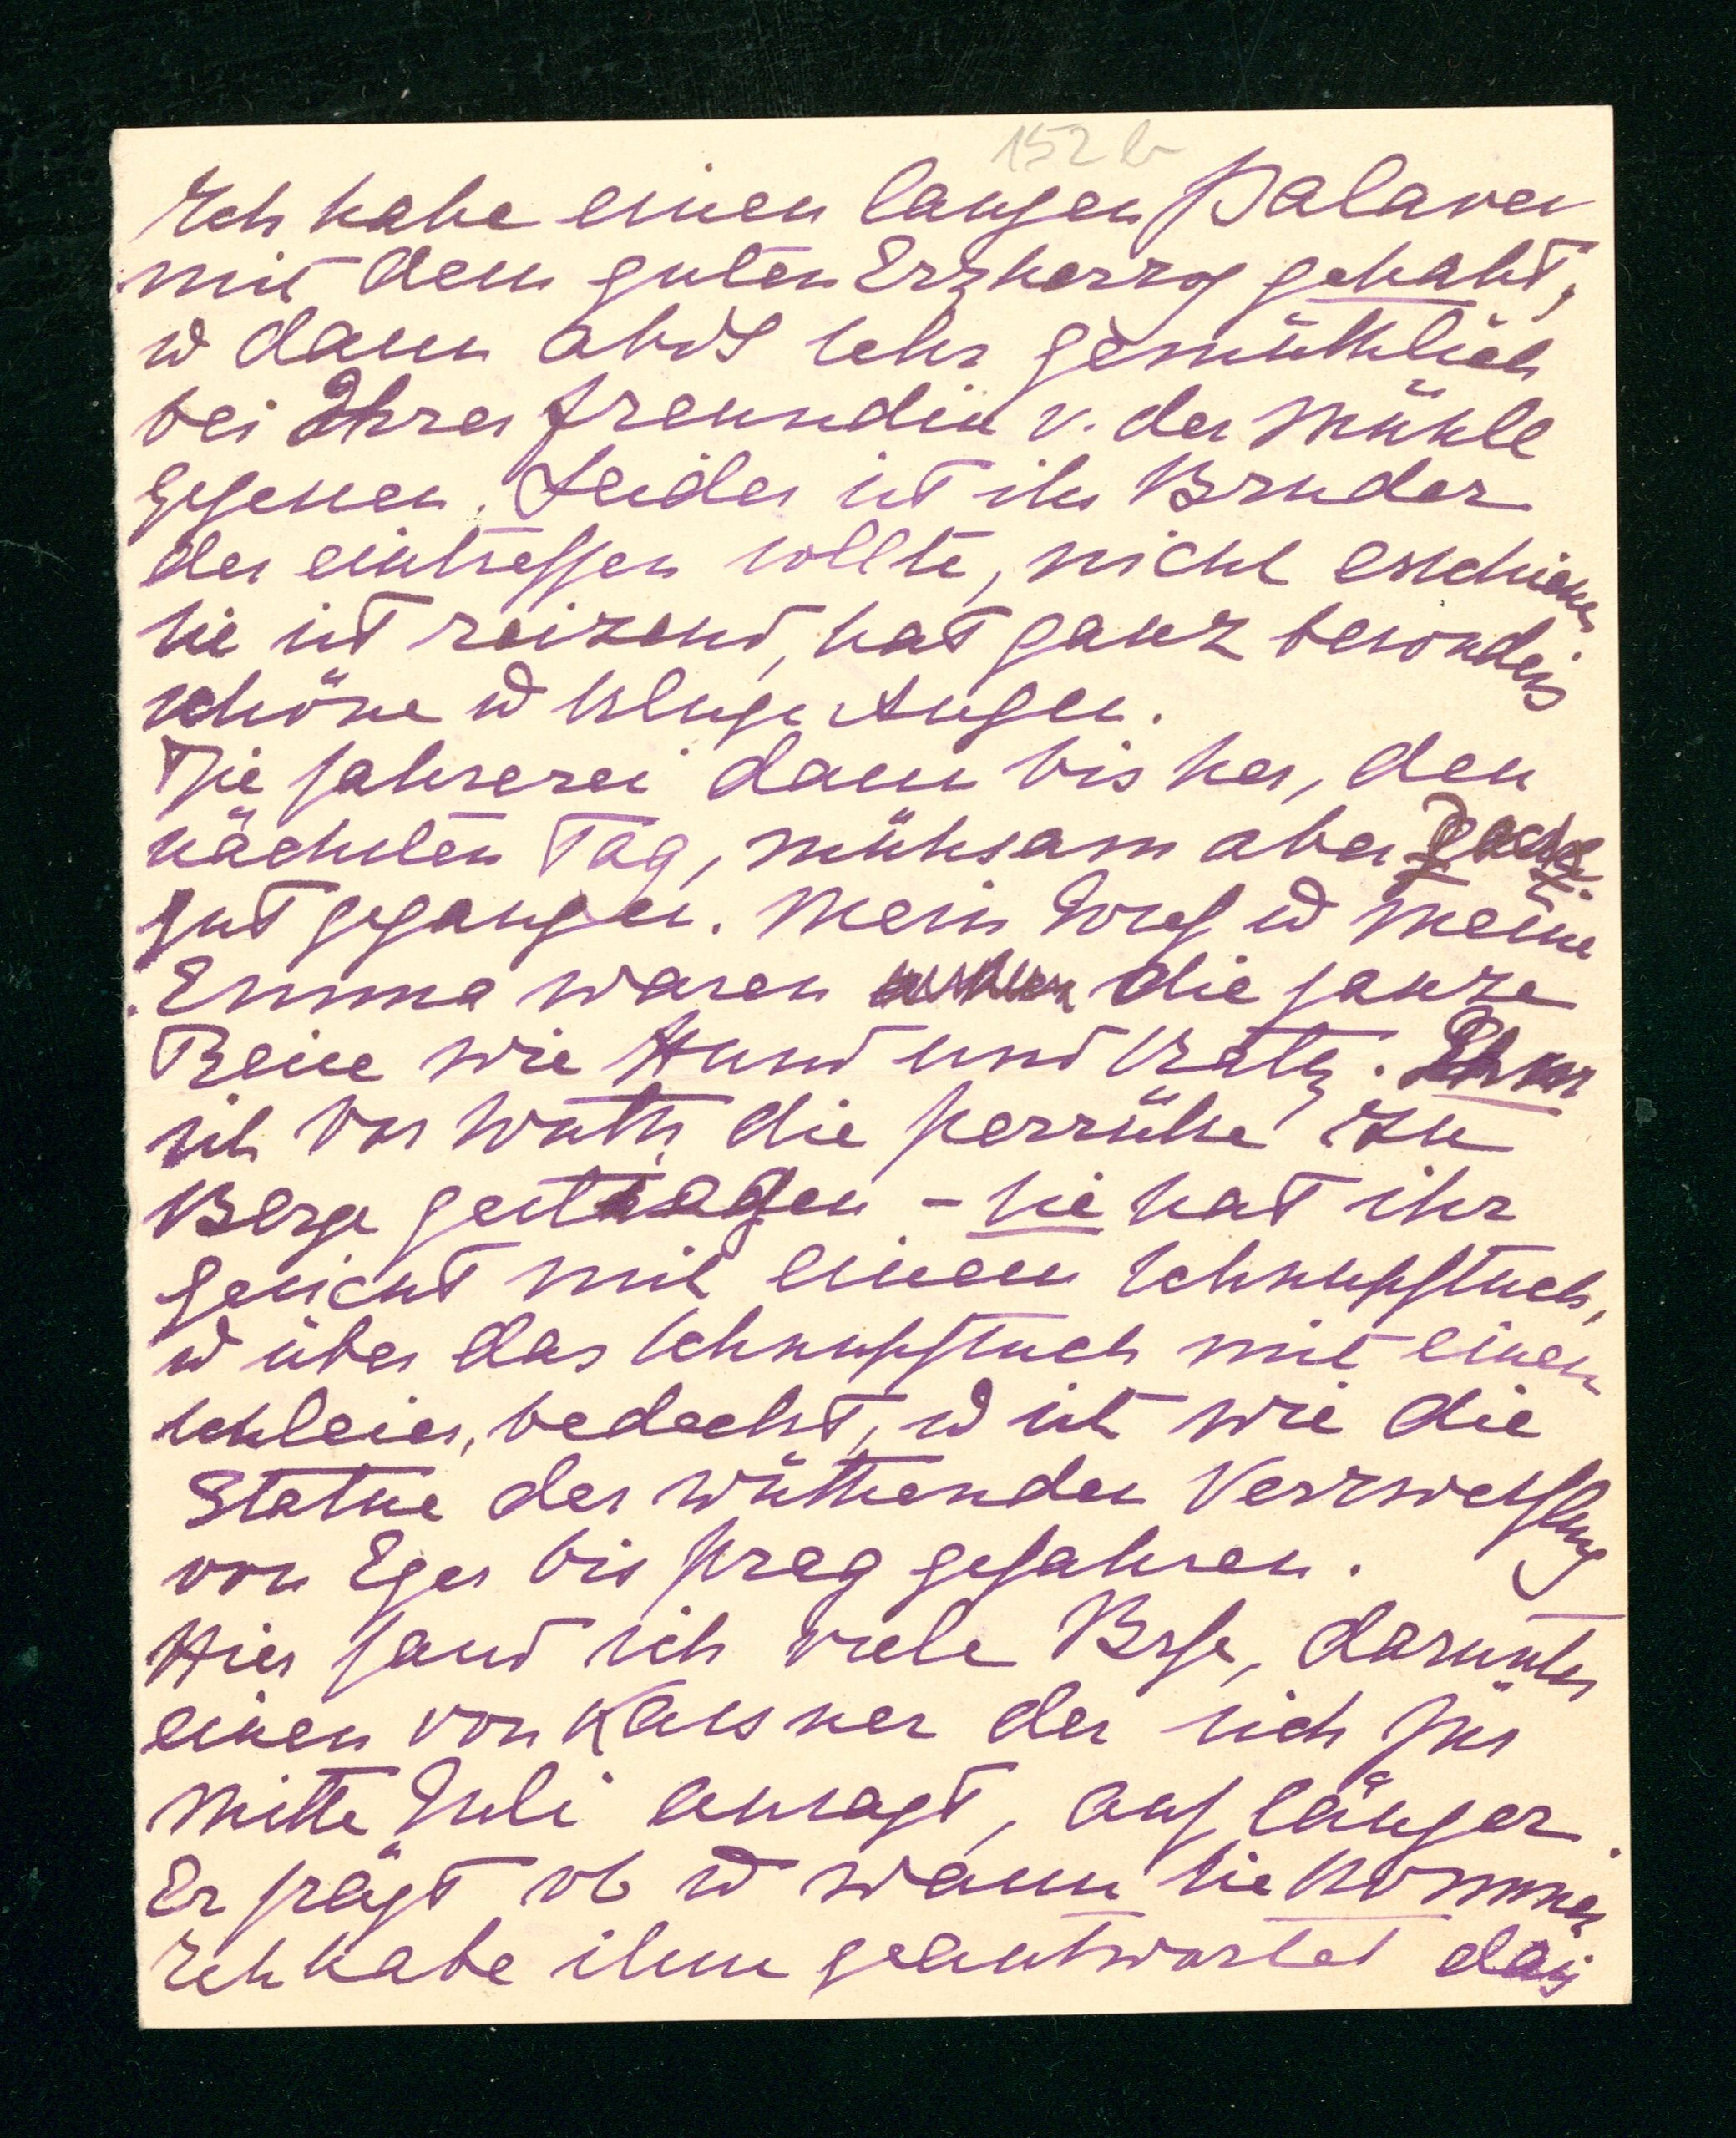 152 b
Ich habe einen langen Palaver
mit dem guten Erzherzog gehabt,
u dann abds sehr gemüthlich
bei Ihrer Freundin v. der Mühle
gegessen. Leider ist ihr Bruder
der eintreffen sollte, nicht erschienen
Sie ist reizend, hat ganz besonders
schöne u kluge Augen.
Die Fahrerei dann bis her, den
nächsten Tag, mühsam aber
gut gegangen. Mein Josef u meine
Emma waren die ganze
Reise wie Hund und Katz. Ihm
ist vor Wuth die Perrüke zu
Berge gestiegen – sie hat ihr
Gesicht mit einem Schnupftuch,
u über das Schnupftuch mit einem
Schleier, bedeckt, u ist wie die
Statue der wüthenden Verzweiflung
von Eger bis Prag gefahren.
Hier fand ich viele Brfe, darunter
einen von Kassner der sich für
Mitte Juli ansagt, auf länger.
Er frägt ob u wann Sie kommen
Ich habe ihm geantwortet daß